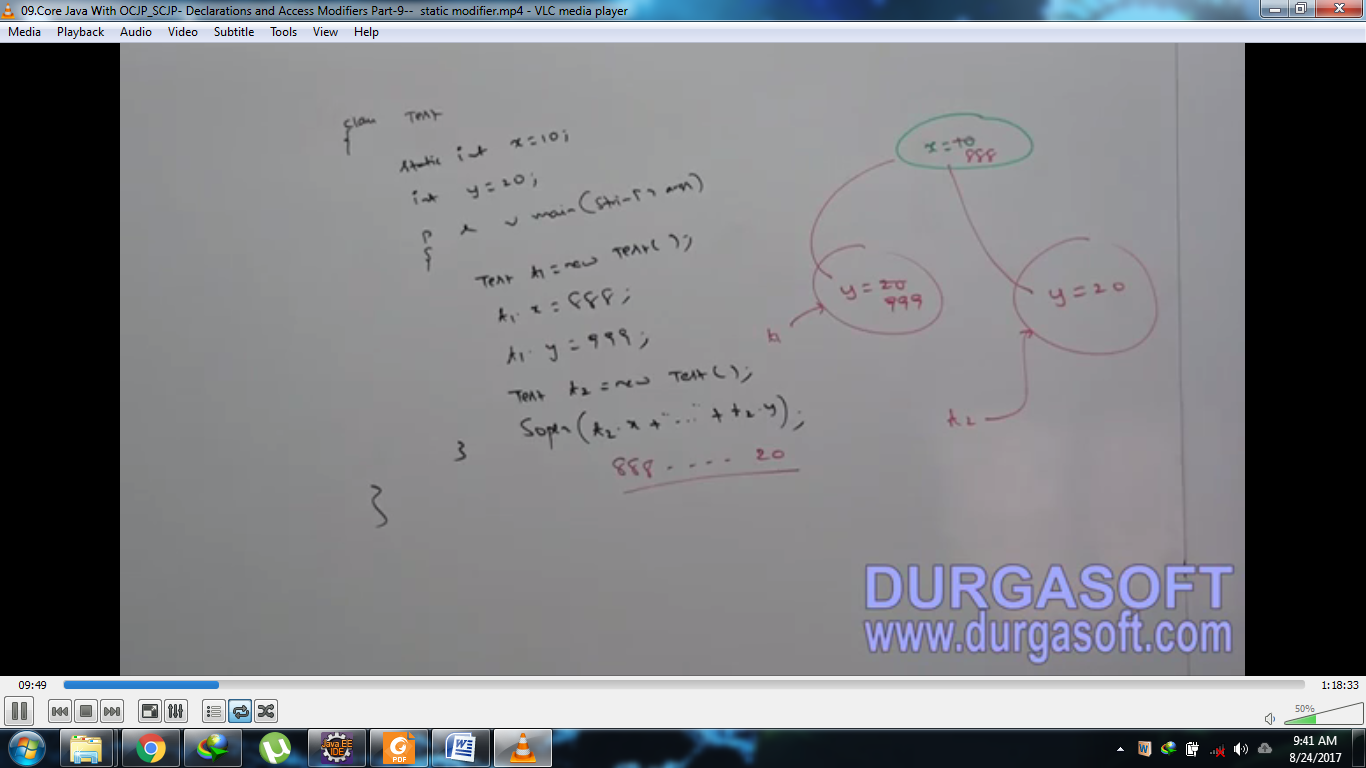 09.Core Java With OCJP_SCJP- Declarations and Access Modifiers Part-9-- static modifier.mp4 - VLC media player
Media Playback Audio Video Subtitle Tools View Help
class Test
{
static int x=10;
int y=20;
p s v main(String[] args)
{
Test t1=new Test();
t1.x=888;
t1.y=999;
Test t2=new Test();
Sopln(t2.x+"..."+t2.y);
}
888 .... 20
}
x=10
888
y=20
999
y=20
t1
t2
DURGASOFT
www.durgasoft.com
09:49 1:18:33
50%
Java EE
IDE
PDF
W
9:41 AM
8/24/2017